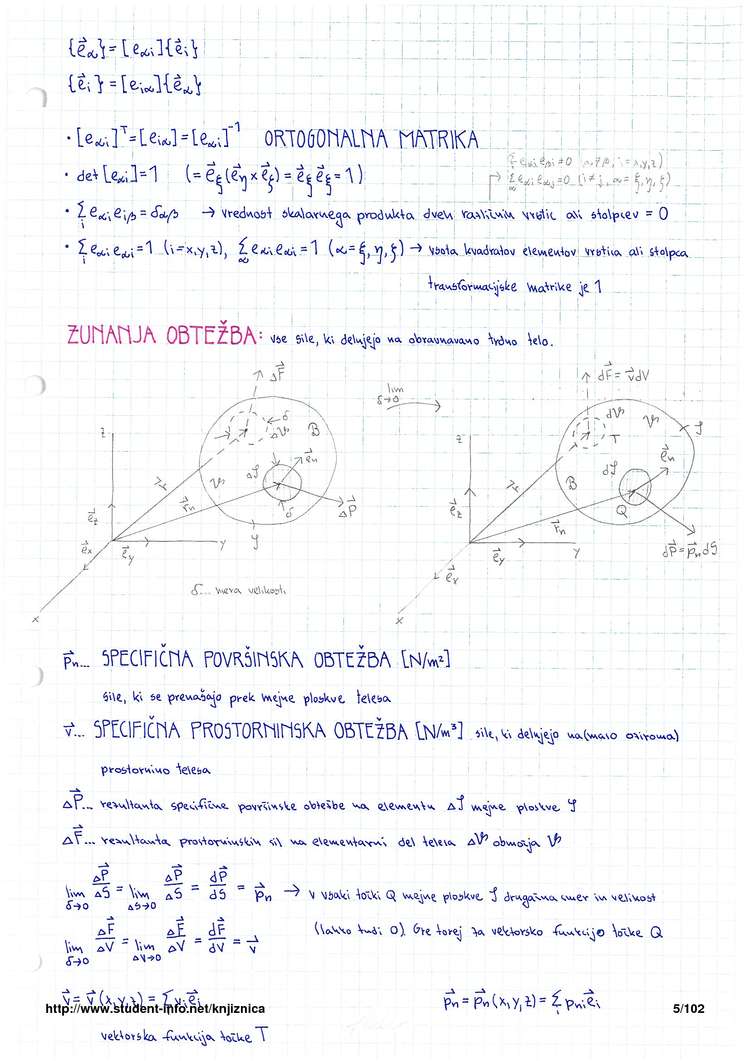 {e⃗α} = [eαi]{e⃗i}
{e⃗i} = [eiα]{e⃗α}
· [eαi]ᵀ = [eiα] = [eαi]⁻¹ ORTOGONALNA MATRIKA
· det[eαi] = 1 (= e⃗ξ(e⃗η × e⃗ζ) = e⃗ξ e⃗ξ = 1)
→ Σα eαi eαj = 0 (i≠j, α = ξ, η, ζ)
· Σi eαi eiβ = δαβ → vrednost skalarnega produkta dveh različnih vrstic ali stolpcev = 0
· Σi eαi eαi = 1 (i=x,y,z), Σα eαi eαi = 1 (α = ξ, η, ζ) → vsota kvadratov elementov vrstica ali stolpca
transformacijske matrike je 1
ZUNANJA OBTEŽBA: vse sile, ki delujejo na obravnavano trdno telo.
ΔF⃗
δ
Δ𝒱
B
e⃗n
Δ𝒮
r⃗
𝒱
r⃗n
δ
ΔP⃗
𝒮
z
e⃗z
e⃗x
e⃗y
y
x
δ... mera velikosti
lim δ→0
dF⃗ = v⃗dV
d𝒱
𝒱
𝒮
T
B
d𝒮
e⃗n
r⃗
Q
r⃗n
dP⃗ = p⃗n dS
z
e⃗z
e⃗y
y
x
p⃗n... SPECIFIČNA POVRŠINSKA OBTEŽBA [N/m²]
sile, ki se prenašajo prek mejne ploskve telesa
v⃗... SPECIFIČNA PROSTORNINSKA OBTEŽBA [N/m³] sile, ki delujejo na (maso oziroma)
prostornino telesa
ΔP⃗... rezultanta specifične površinske obtežbe na elementu Δ𝒮 mejne ploskve 𝒮
ΔF⃗... rezultanta prostorninskih sil na elementarni del telesa Δ𝒱 območja 𝒱
lim δ→0 ΔP⃗/ΔS = lim ΔS→0 ΔP⃗/ΔS = dP⃗/dS = p⃗n → v vsaki točki Q mejne ploskve 𝒮 drugačna smer in velikost
(lahko tudi 0). Gre torej za vektorsko funkcijo točke Q
lim δ→0 ΔF⃗/ΔV = lim ΔV→0 ΔF⃗/ΔV = dF⃗/dV = v⃗
v⃗ = v⃗(x,y,z) = Σi vi e⃗i
p⃗n = p⃗n(x,y,z) = Σi pni e⃗i
http://www.student-info.net/knjiznica 5/102
vektorska funkcija točke T